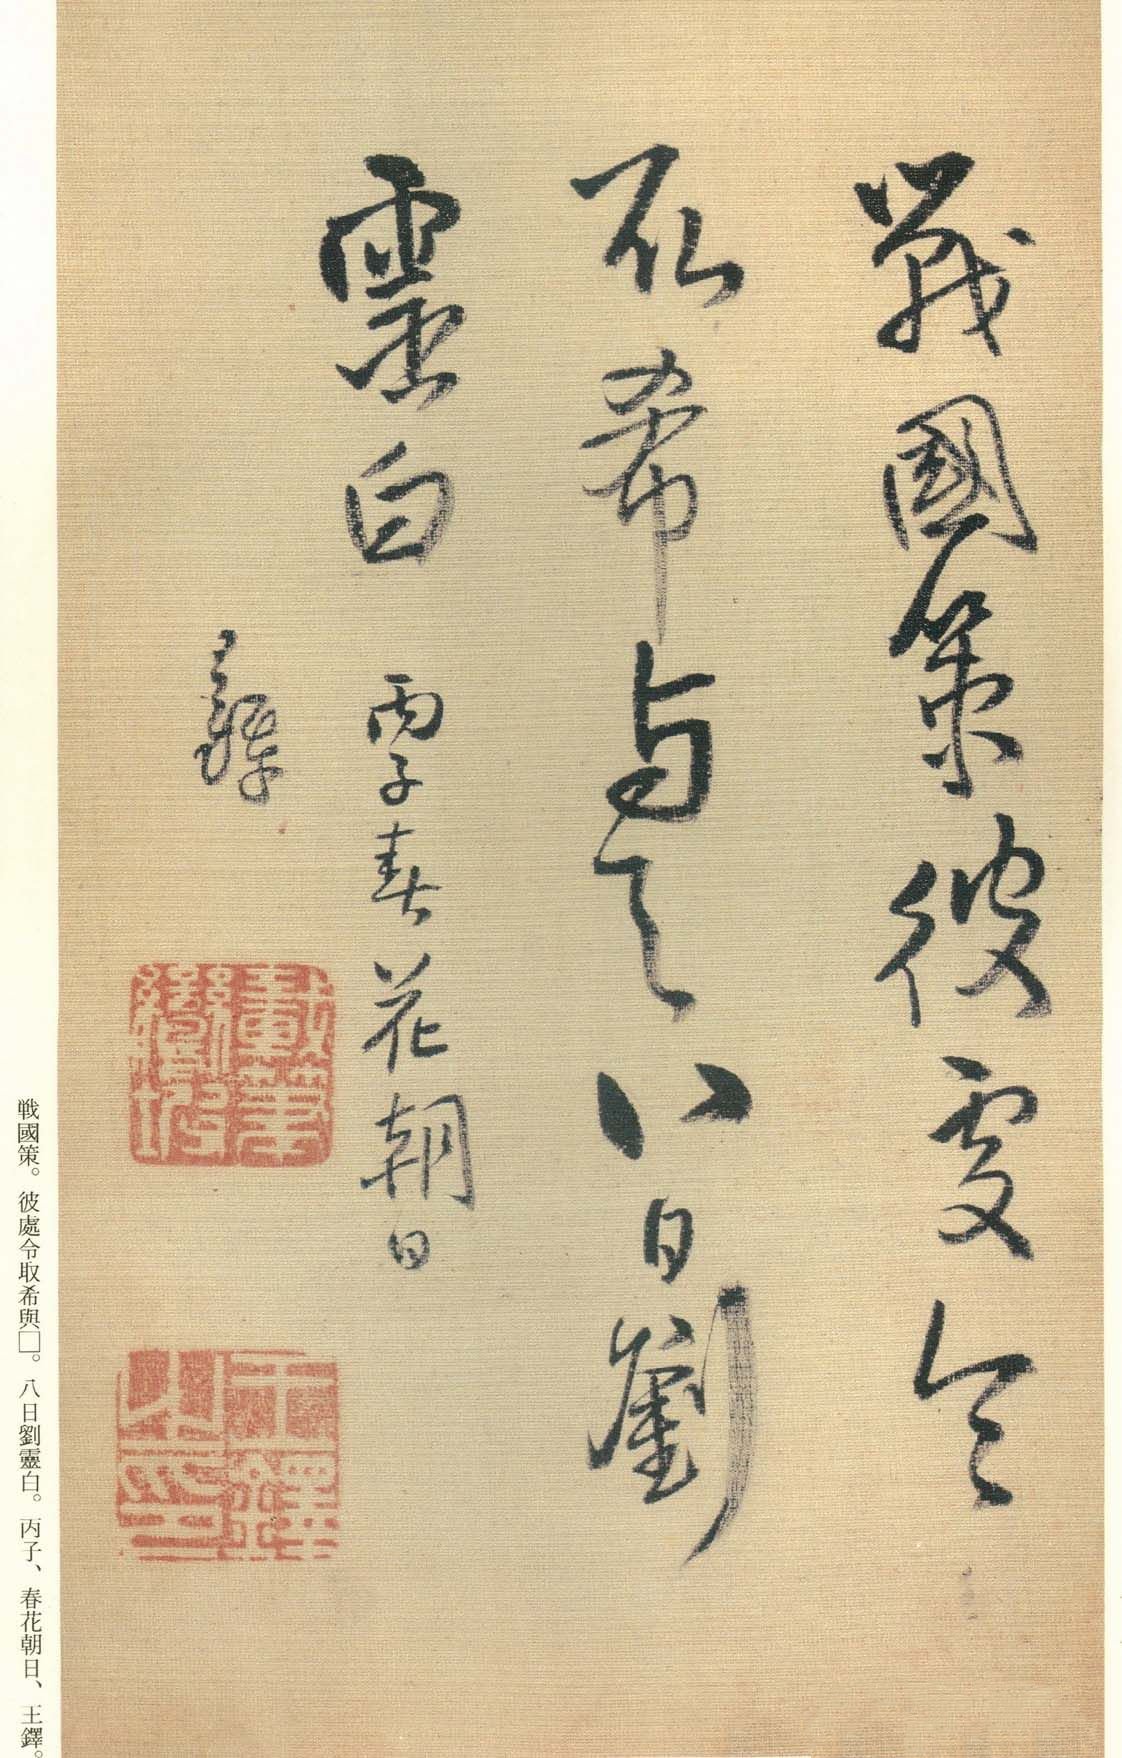 戰國策彼處令
取希與八日劉
靈白 丙子春花朝日
王鐸
王鐸之印
戦國策。彼處令取希與□。八日劉靈白。丙子、春花朝日、王鐸。